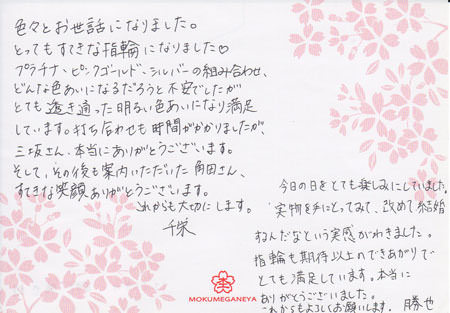 色々とお世話になりました。
とってもすてきな指輪になりました♡
プラチナ、ピンクゴールド、シルバーの組み合わせ、
どんな色あいになるだろうと不安でしたが
とても透き通った明るい色あいになり満足
しています。打ち合わせも時間がかかりましたが、
三坂さん、本当にありがとうございます。
そして、その後も案内いただいた角田さん、
すてきな笑顔ありがとうございます。
これからも大切にします。
千栄
今日の日をとても楽しみにしていました。
実物を手にとってみて、改めて結婚
するんだなという実感がわきました。
指輪も期待以上のできあがりで
とても満足しています。本当に
ありがとうございました。
これからもよろしくお願いします。 勝也
MOKUMEGANEYA